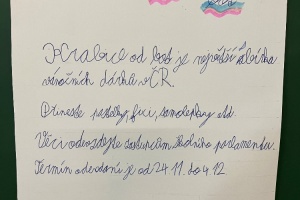 Krabice od bot je největší sbírka
vánočních dárků v ČR.
Přineste pastelky, fixi, samolepky atd.
Věci odevzdejte zástupcům školního parlamentu.
Termín odevzdání je od 24.11. do 4.12.